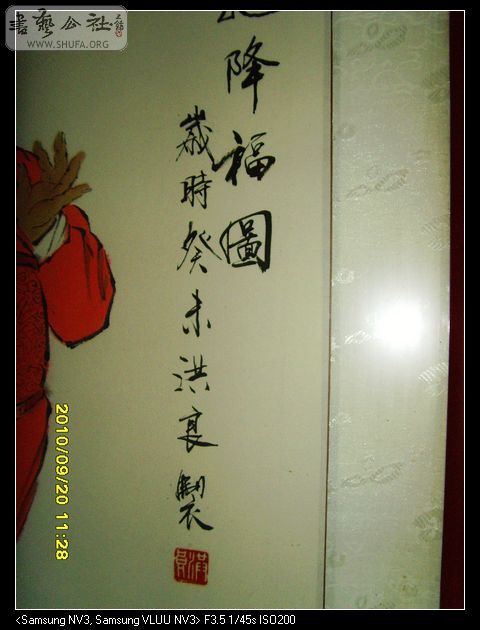 書藝公社
WWW.SHUFA.ORG
降福圖
歲時癸未洪良製
2010/09/20 11:28
<Samsung NV3, Samsung VLUU NV3> F3.5 1/45s ISO200